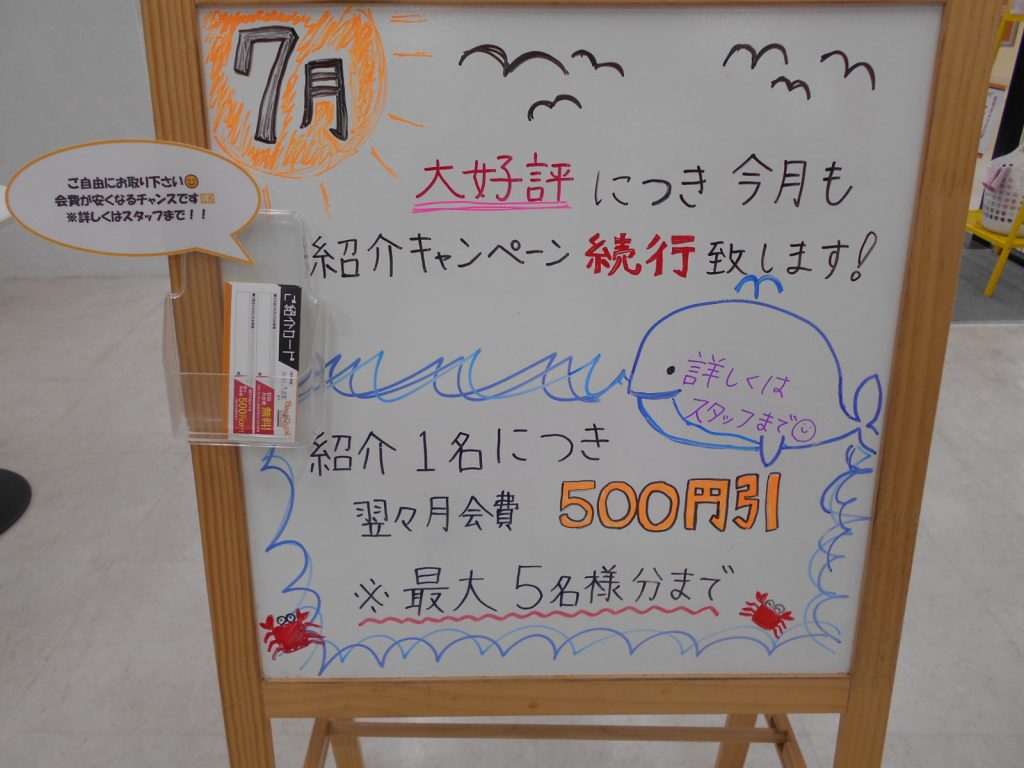 7月
大好評につき今月も
紹介キャンペーン続行致します!
ご自由にお取り下さい
会費が安くなるチャンスです
※詳しくはスタッフまで!!
ご紹介カード
無料!
500円OFF!
詳しくは
スタッフまで
紹介1名につき
翌々月会費 500円引
※最大5名様分まで